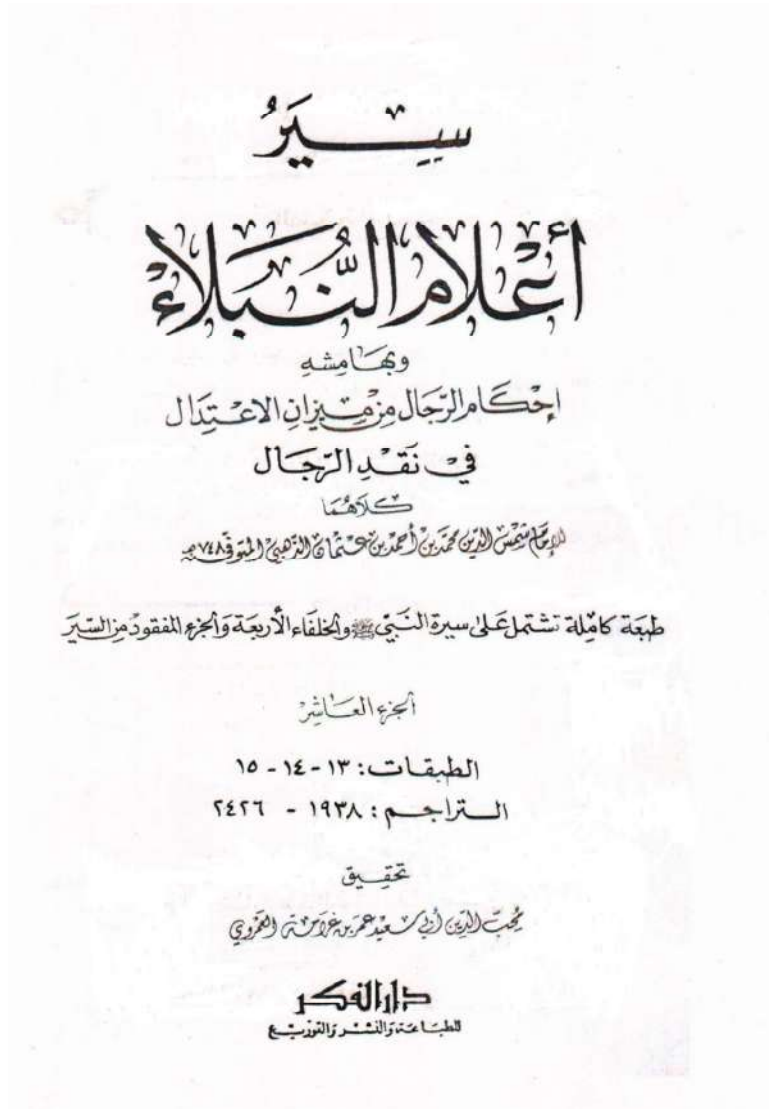 سِيَرُ
أعْلام النُّبَلاءْ
وبهَامِشِهِ
إحْكَام الرّجَال مِنْ مِيزانِ الاعْتِدَال
فيْ نَقْدِ الرّجَال
كلاهُمَا
للإمَام شمْسِ الدّين محمّد بن أحمد بن عثمان الذهبيْ المتوفّىٰ ٧٤٨ هـ
طبعَة كامِلة تشتمل عَلىٰ سيرة النَبيّ ﷺ والخلفَاء الأربعَة وَالجزء المفقود مِنَ السّيَر
الجزء العَاشِرْ
الطبقات: ١٣ - ١٤ - ١٥
التراجم: ١٩٣٨ - ٢٤٢٦
تحقِيق
محُبّ الدّين أبي سَعيد عمَر بن غَرامَة العَمْروي
دار الفكر
للطبَاعَة وَالنشْر وَالتوزيْع